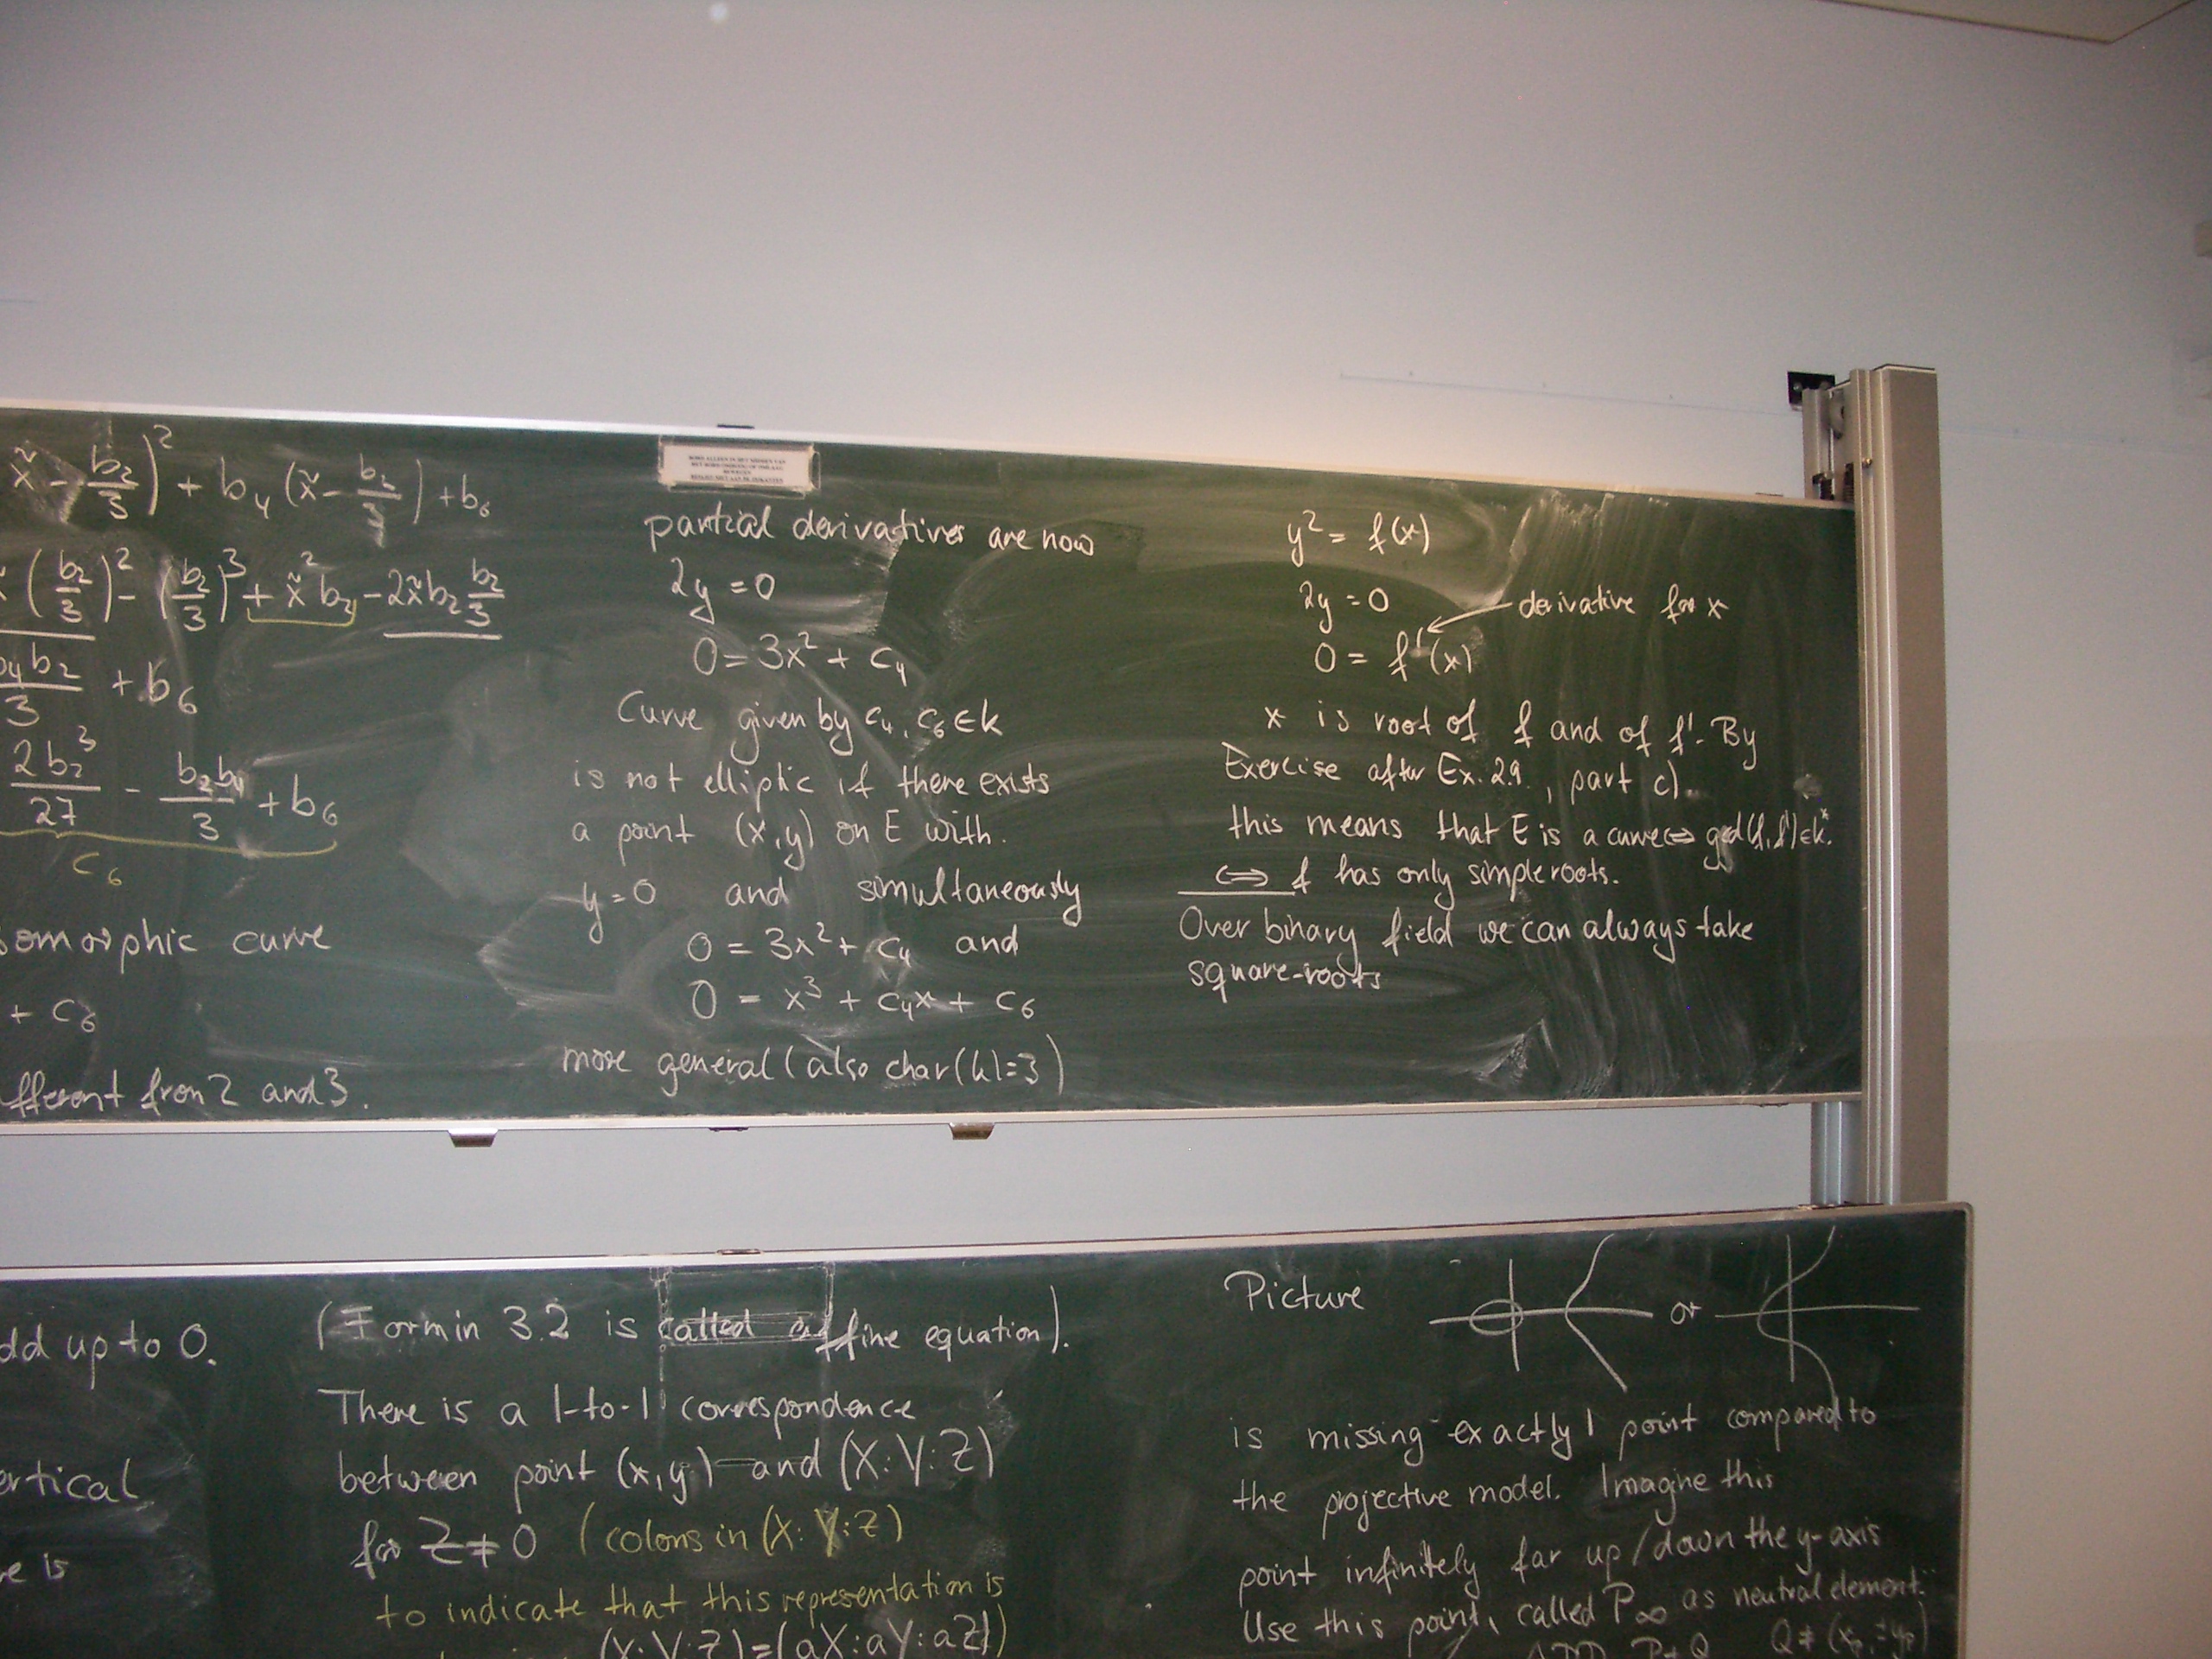 x̃ - b₂/3)² + b₄ (x̃ - b₂/3) + b₆
(b₂/3)² - (b₂/3)³ + x̃² b₂ - 2x̃ b₂ b₂/3
b₄b₂/3 + b₆
2b₂³/27 - b₂b₄/3 + b₆
c₆
omorphic curve
+ c₆
fferent from 2 and 3.
partial derivatives are now
2y = 0
0 = 3x² + c₄
Curve given by c₄, c₆ ∈ k
is not elliptic if there exists
a point (x,y) on E with
y = 0 and simultaneously
0 = 3x² + c₄ and
0 = x³ + c₄x + c₆
more general (also char(k)=3)
y² = f(x)
2y = 0
derivative for x
0 = f'(x)
x is root of f and of f'. By
Exercise after Ex. 2.9., part c)
this means that E is a curve ⇔ gcd(f,f') ∈ k*.
⇔ f has only simple roots.
Over binary field we can always take
square-roots
dd up to 0.
ertical
re is
(Form in 3.2 is called affine equation).
There is a 1-to-1 correspondence
between point (x,y) and (X:Y:Z)
for Z ≠ 0 (colons in (X:Y:Z)
to indicate that this representation is
(X:Y:Z)=(aX:aY:aZ))
Picture
or
is missing exactly 1 point compared to
the projective model. Imagine this
point infinitely far up/down the y-axis
Use this point, called P∞ as neutral element.
ADD P+Q Q ≠ (xₚ, ±yₚ)